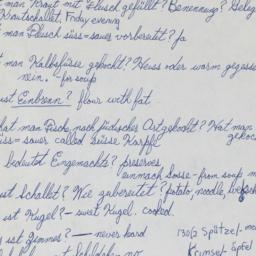 man Kraut mit Fleisch gefüllt? Benennung? Geleg
Krautschallet, Friday evening
man Fleisch süss=sauer vorbereitet? Ja
man Kalbsfüsse gekocht? Heiss oder warm gegesse
nein. - for soup
ist Einbrenn? flour with fat
hat man Fische nach jüdischer Art gekocht? Hat man
süss=sauer called süsse Karpfe gekoc
bedeutet Eingemachts? preserves
einmach sosse - from soup m
ist Schallet? Wie zubereitet? potato, noodle,
ist Kugel? - sweet Kugel. cooked.
ist Zimmes? - never heard
130/2 Spätzel
Krimsel: Äpfel